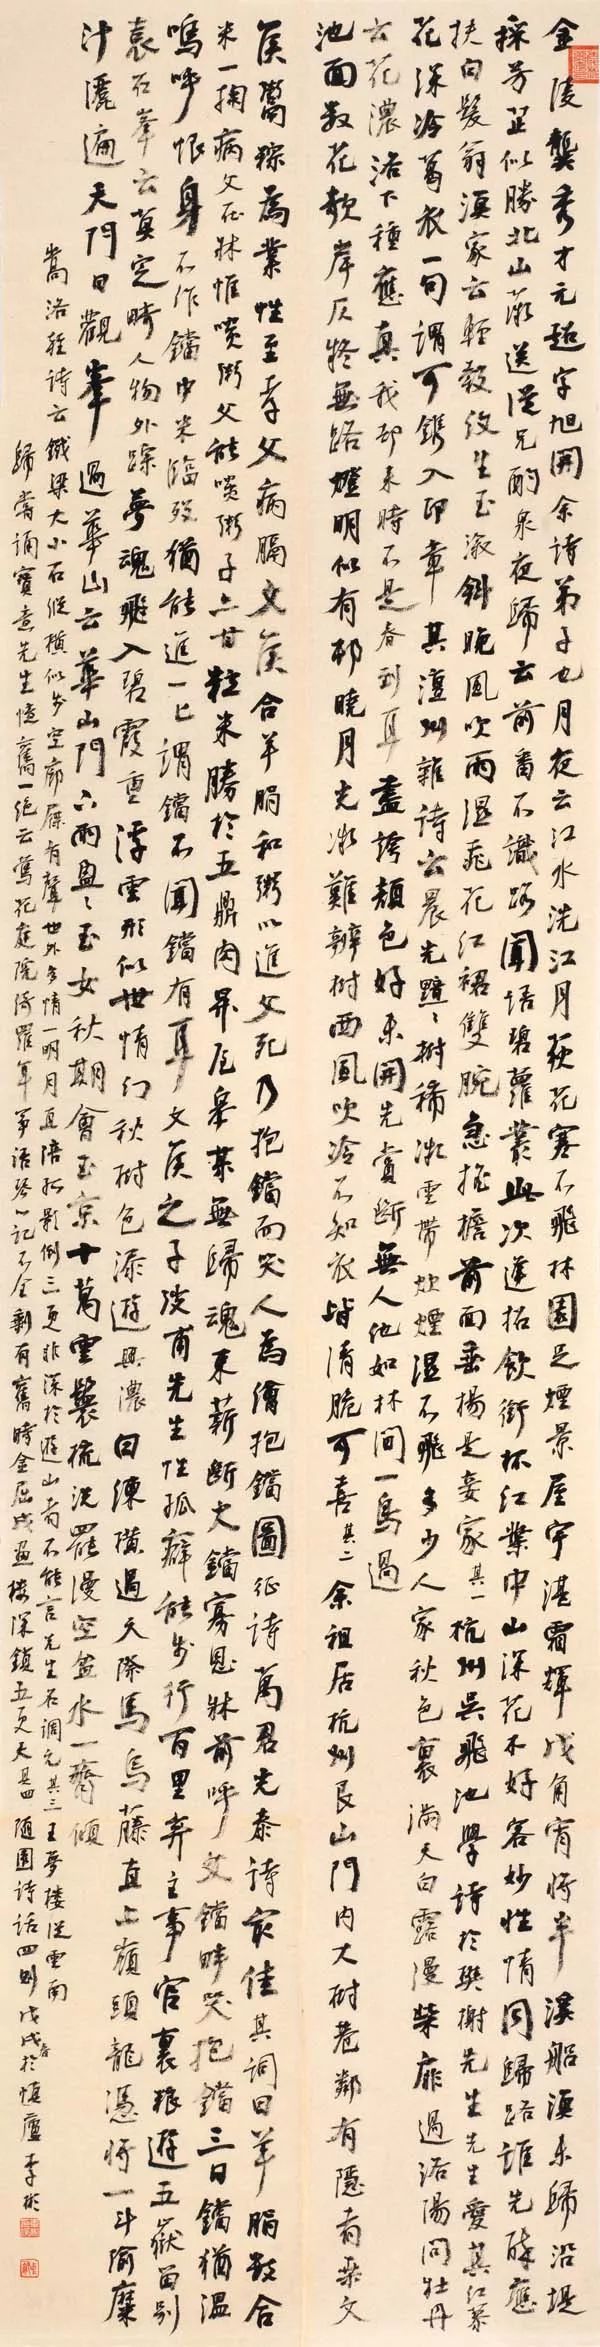 金陵龔秀才元超字旭開余詩弟子也月夜云江水洗江月荻花寒不飛林園足煙景屋宇湛霜輝戍角宵將半溪船漁未歸沿堤
採芳芷似勝北山薇送從兄酌泉夜歸云前番不識路聞語碧蘿叢此次進招飲銜杯紅葉中山深花不好客妙性情同歸路誰先醉應
扶白髮翁漁家云輕縠紋生玉漵斜晚風吹雨濕飛花紅裙雙腕急推檐前面垂楊是妾家其一杭州吳飛池學詩於樊榭先生先生愛其紅蓼
花深冷葛衣一句謂可鐫入印章其澶州雜詩云晨光蹴樹稀潑雲帶炊煙濕不飛多少人家秋色裏滿天白露漫柴扉過洛陽問牡丹
云花濃洛下種應真我卻來時不是春到耳盡誇顏色好未開先賞斷無人他如林間一鳥過
池面數花欹岸仄將無路燈明似有村曉月光潑難辨樹西風吹冷不知衣皆清脆可喜其二余祖居杭州艮山門內大樹巷鄰有隱者桑文
侯鬻粽為業性至孝父病膈文侯合羊脂和粥以進父死乃抱鐺而哭人為繪抱鐺圖征詩萬君光泰詩最佳其詞曰羊脂數合
米一掬病父在牀惟啖粥父能啖粥子亦甘粒米勝於五鼎肉昇屋皋某無歸魂束薪斷火鐺寡恩牀前呼父鐺畔哭抱鐺三日鐺猶溫
嗚呼恨身不作鐺中米臨歿猶能進一匕謂鐺不聞鐺有耳文侯之子弢甫先生性孤癖能步行百里棄主事官裹糧遊五嶽留別
袁石峯云莫定畸人物外蹤夢魂飛入碧霞重浮雲形似世情幻秋樹色添遊興濃白練橫過天際馬烏藤直上嶺頭龍憑將一斗隃麋
汁灑遍天門日觀峯過華山云華山門下雨盈盈玉女秋期會玉京十萬雲鬟梳洗罷漫空盆水一齊傾
嵩洛雜詩云鐵梁大小石縱橫似步空廊屧有聲世外多情一明月直陪孤影倒三更非深於遊山者不能言先生名調元其三王夢樓從雲南
歸嘗誦寶意先生憶舊一絕云鶯花庭院綺羅年事語琴心記不全剩有舊時金屈戌畫樓深鎖五更天其四隨園詩話四則戊戌春於慎廬李彬